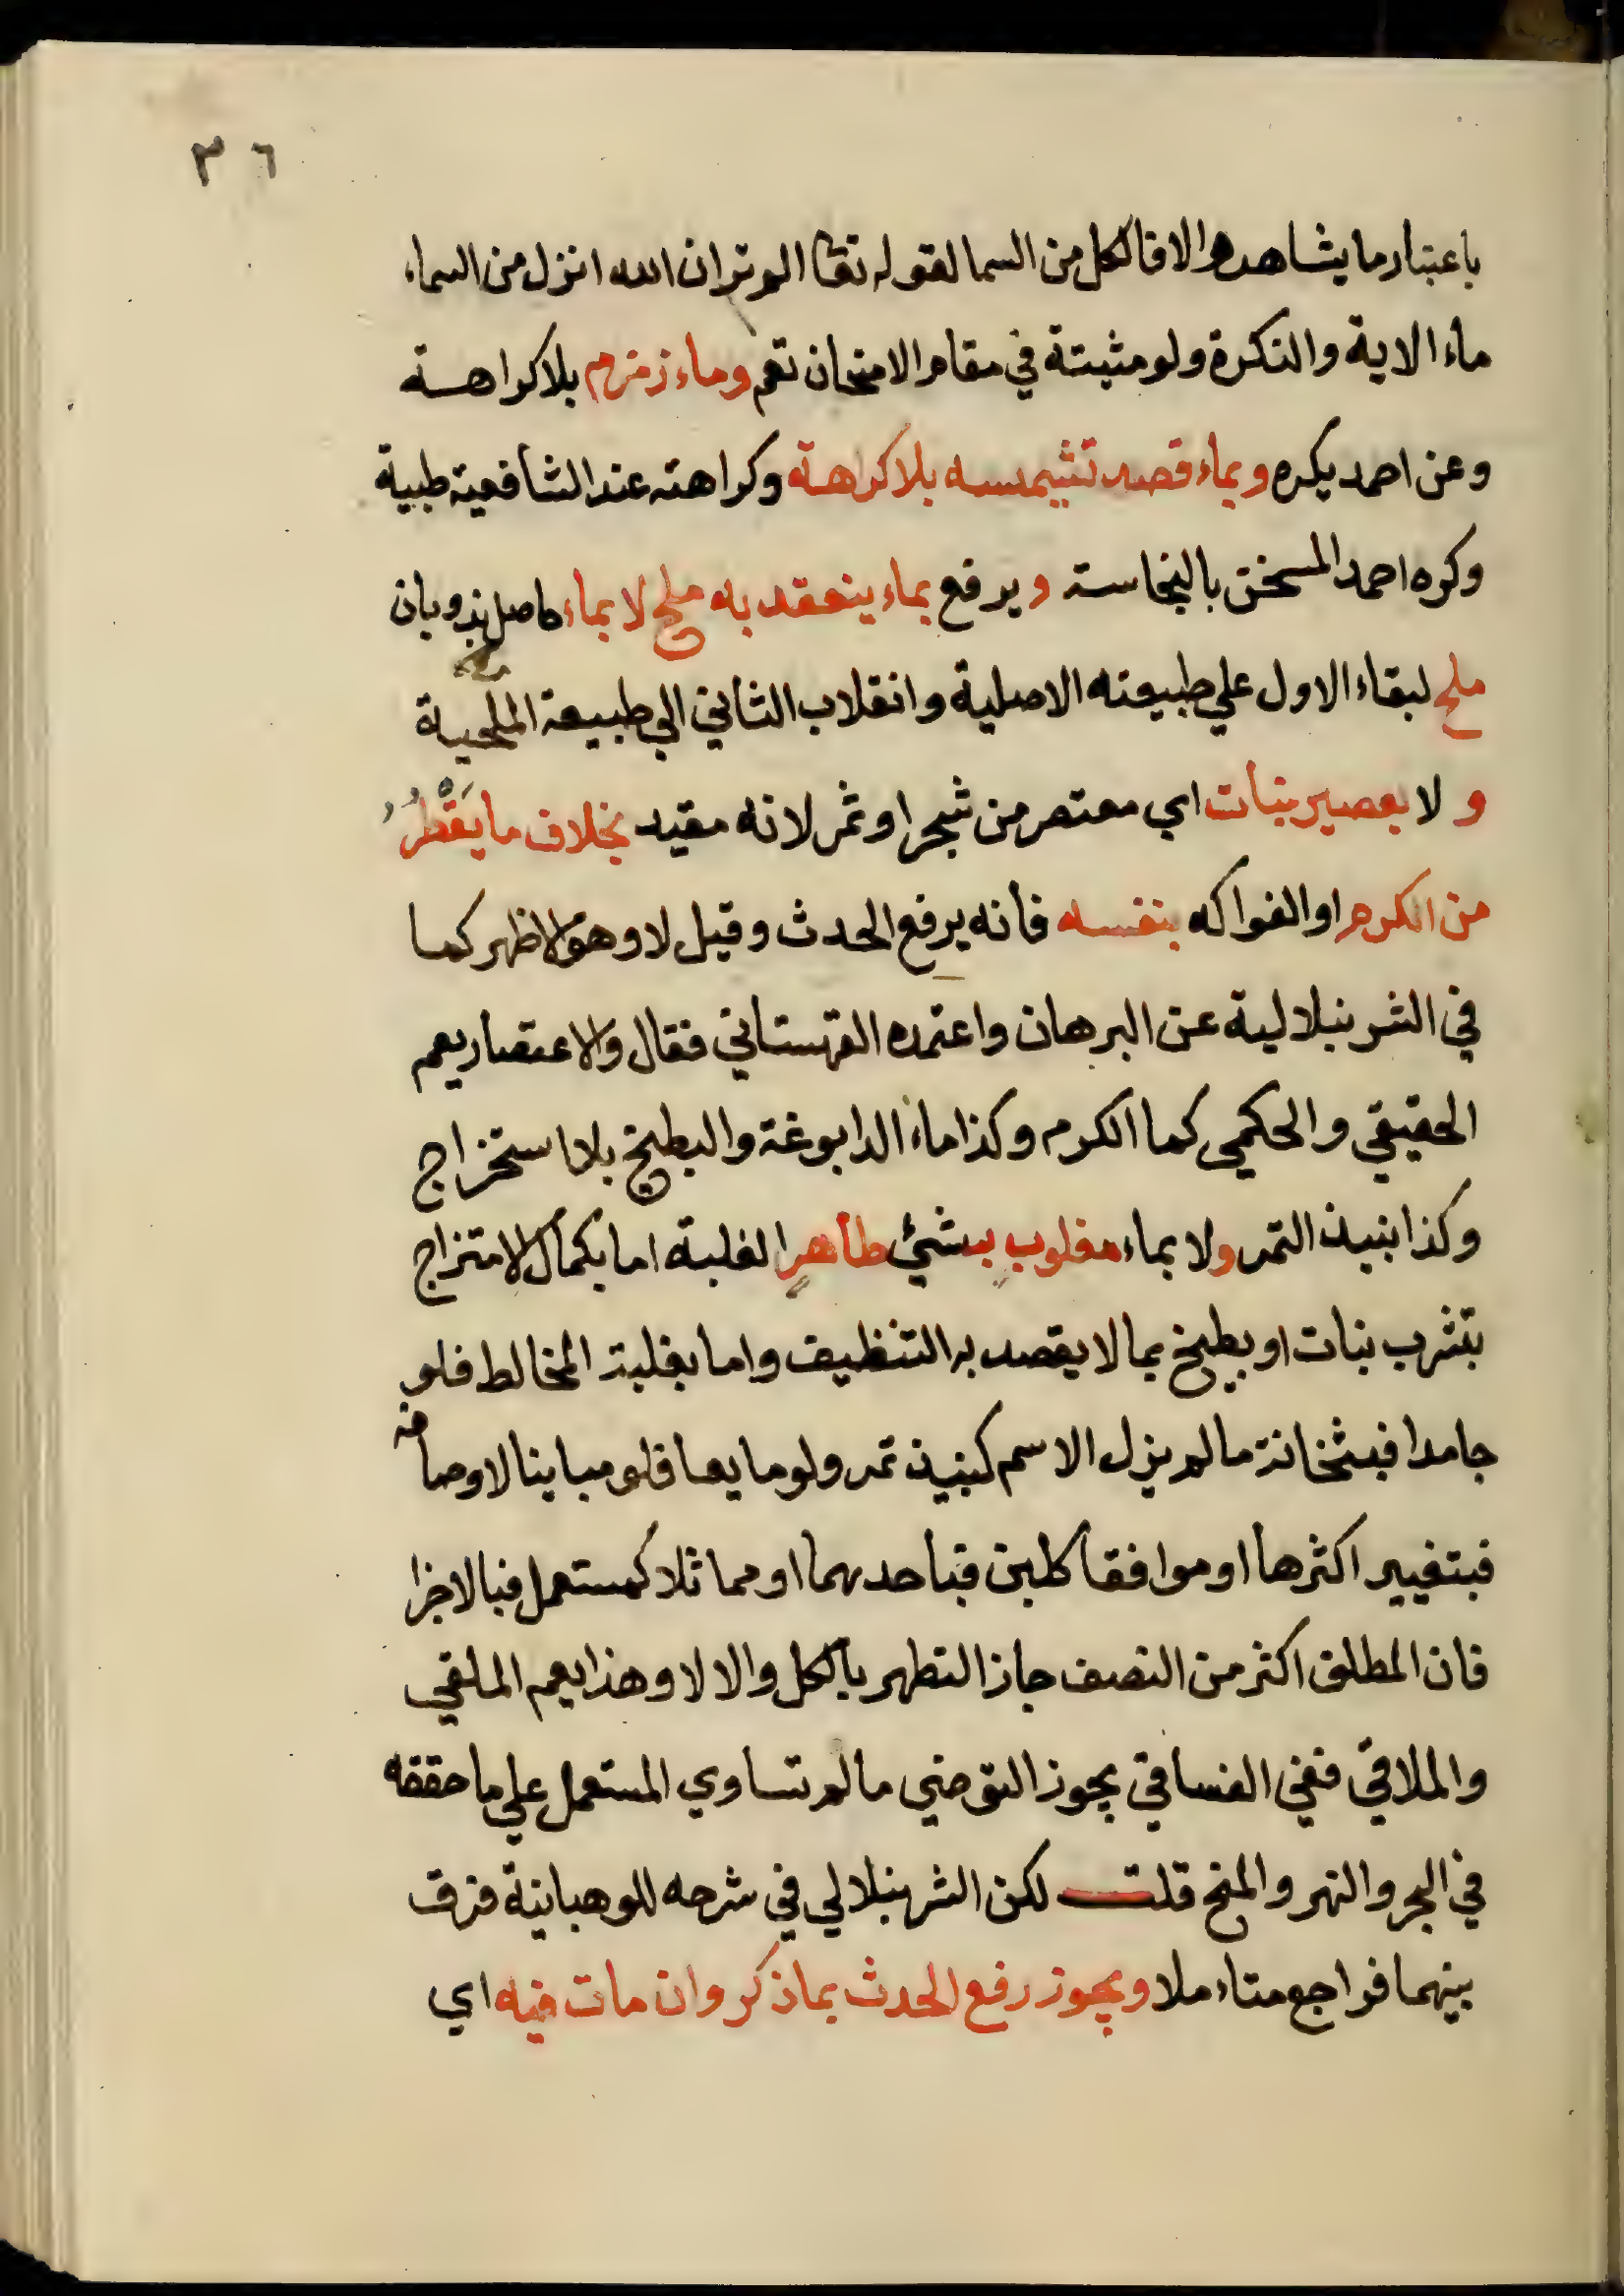 ٣٦
باعتبار ما يشاهد والا فالكل من السما لقوله تعا الم تر ان الله انزل من السماء
ماء الاية والنكرة ولو مثبتة في مقام الامتحان تعم وماء زمزم بلا كراهة
وعن احمد يكره وبماء قصد تشيمسه بلا كراهة وكراهته عند الشافعية طبية
وكره احمد المسخن بالنجاسة ويرفع بماء ينعقد به ملح لا بماء حاصل بذوبان
ملح لبقاء الاول علي طبيعته الاصلية وانقلاب الثاني الي طبيعة الملحية
ولا بعصير نبات اي معتصر من شجر او ثمر لانه مقيد بخلاف ما يَقْطُرُ
من الكرم او الفواكه بنفسه فانه يرفع الحدث وقيل لا وهو الاظهر كما
في الشرنبلالية عن البرهان واعتمده القهستاني فقال والاعتصار يعم
الحقيقي والحكمي كما الكرم وكذا ماء الدابوغة والبطيخ بلا استخراج
وكذا نبيذ التمر ولا بماء مغلوب بشيئ طاهر الغلبة اما بكمال الامتزاج
بتشرب نبات او بطبخ بما لا يقصد به التنظيف واما بغلبة المخالط فلو
جامدا فبثخانة ما لم يزل الاسم كنبيذ تمر ولو مايعا فلو مباينا لاوصافه
فبتغيير اكثرها او موافقا كلبن فباحدهما او مماثلا كمستعمل فبالاجزا
فان المطلق اكثر من النصف جاز التطهر بالكل والا لا وهذا يعم الملقي
والملاقي ففي الفساقي يجوز التوضي ما لم تساوي المستعمل علي ما حققه
في البحر والنهر والمنح قلت لكن الشرنبلالي في شرحه للوهبانية فرق
بينهما فراجع متاءملا ويجوز رفع الحدث بما ذكر وان مات فيه اي